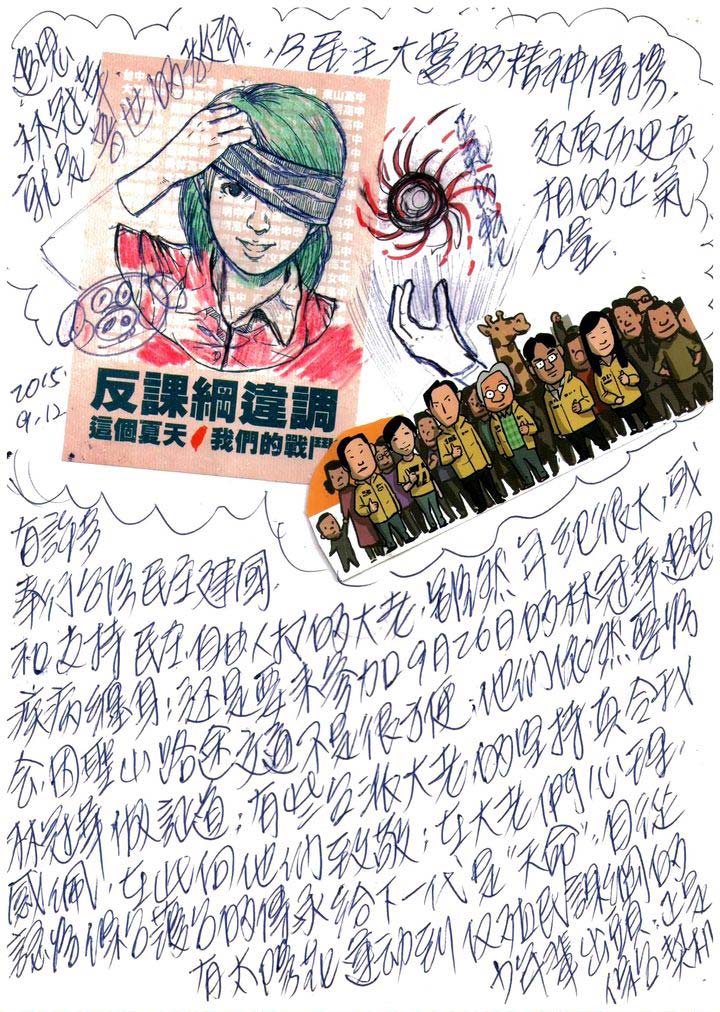 追思
林冠華
就是
以民主大愛的精神傳揚，
還原历史真
相的正氣
力量.
台中
東山高中
反課綱違調
這個夏天 我們的戰鬥
2015.
9.12
有許多
奉行台湾民主建國
和支持民主自由人权的大老，雖然年紀很大，或
疾病纏身；还是要來参加9月26日的林冠華追思
会，因聖山路途交通不是很方便；他們依然要為
林冠華做証道；有些台派大老的坚持，真令我
感佩，在此向他們致敬；在大老們心裡，
認為保台護台的傳承給下一代是"天命"，自從
有太陽花運动到反殖民課綱的
少年輩出頭；正是